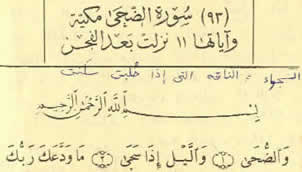 (٩٣) سُورَة الضُّحَى مَكيَّة
وَآيَاتُهَا ١١ نَزَلَتْ بَعْدَ الفَجْرِ
السجواء : الناقة التى إذا حُلبت سكنت
بِسْمِ ٱللَّهِ ٱلرَّحْمَٰنِ ٱلرَّحِيمِ
وَٱلضُّحَىٰ ١ وَٱلَّيْلِ إِذَا سَجَىٰ ٢ مَا وَدَّعَكَ رَبُّكَ